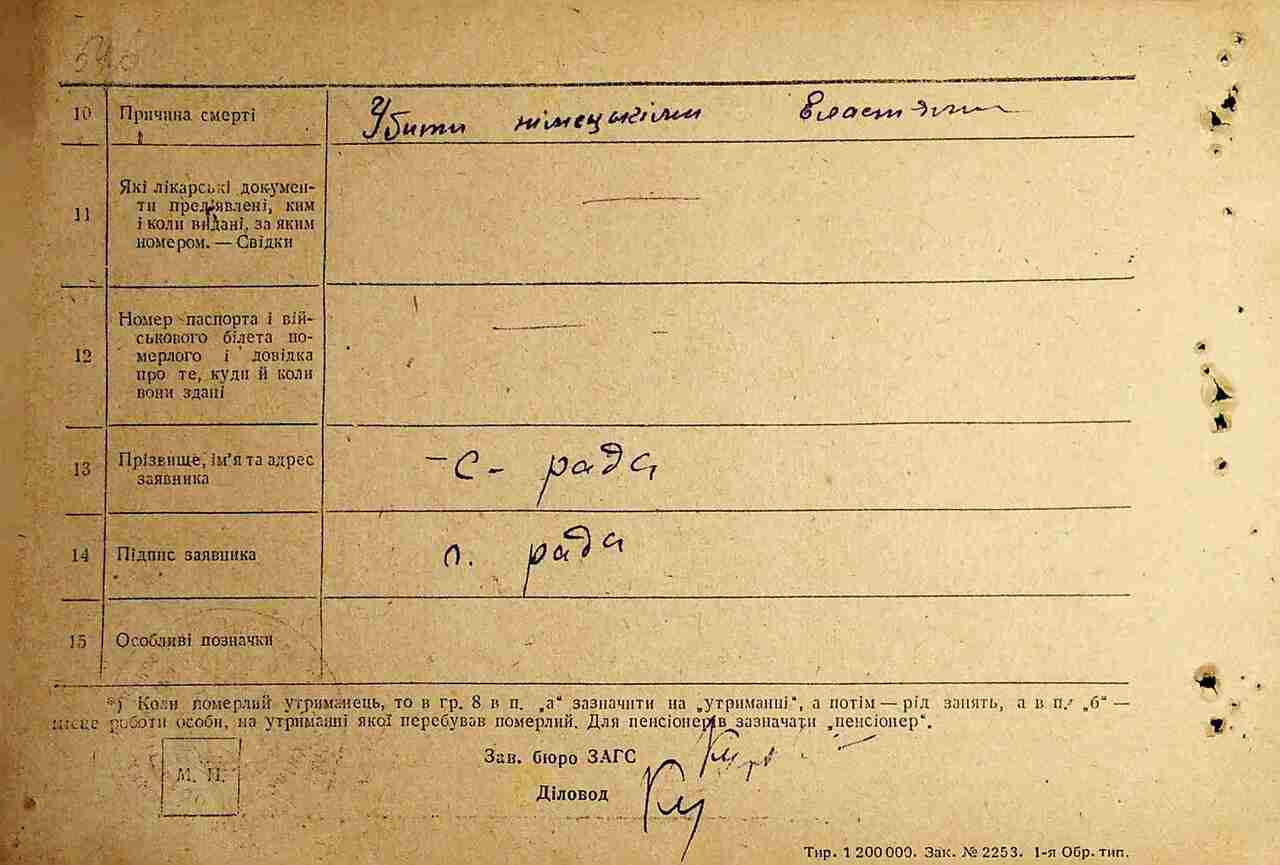 10 Причина смерті Убити німецькіми властями
11 Які лікарські докумен-
ти пред'явлені, ким
і коли видані, за яким
номером. — Свідки
12 Номер паспорта і вій-
ськового білета по-
мерлого і довідка
про те, куди й коли
вони здані
13 Прізвище, ім'я та адрес
заявника
-с- рада
14 Підпис заявника с. рада
15 Особливі позначки
*) Коли померлий утриманець, то в гр. 8 в п. „а“ зазначити на „утриманні“, а потім — рід занять, а в п. „б“ —
місце роботи особи, на утриманні якої перебував померлий. Для пенсіонерів зазначати „пенсіонер“.
Зав. бюро ЗАГС
М. П.
Діловод
Тир. 1 200 000. Зак. № 2253. 1-я Обр. тип.